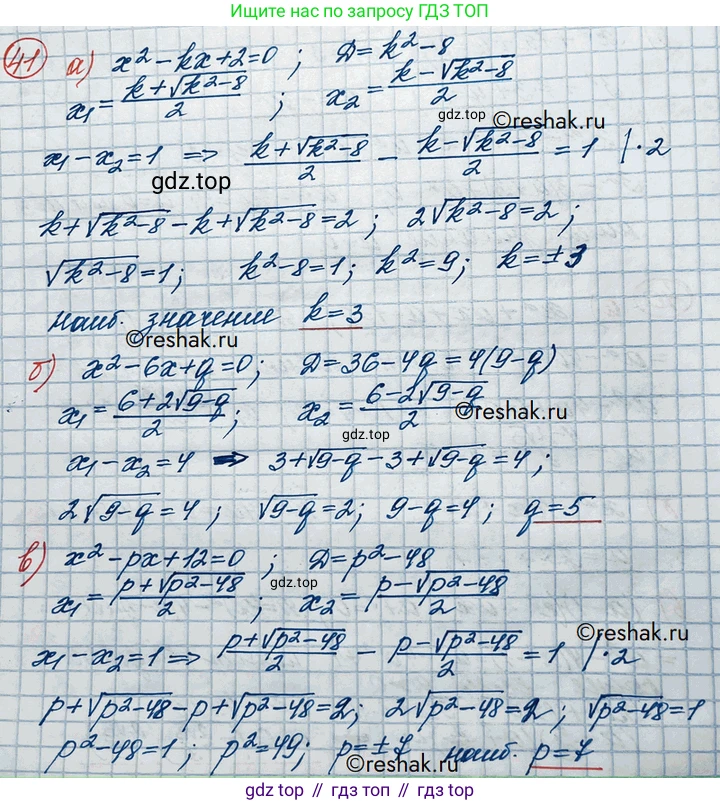 Ищите ответы по запросу ГДЗ ТОП
41 а) x² - kx + 2 = 0 ; Д = k² - 8
x₁ = (k + √(k² - 8))/2 ; x₂ = (k - √(k² - 8))/2
©reshak.ru
x₁ - x₂ = 1 ⇒ (k + √(k² - 8))/2 - (k - √(k² - 8))/2 = 1 | · 2
gdz.top
k + √(k² - 8) - k + √(k² - 8) = 2 ; 2√(k² - 8) = 2 ;
√(k² - 8) = 1 ; k² - 8 = 1 ; k² = 9 ; k = ± 3
наиб. значение k = 3
©reshak.ru
б) x² - 6x + q = 0 ; Д = 36 - 4q = 4(9 - q)
x₁ = (6 + 2√(9 - q))/2 ; x₂ = (6 - 2√(9 - q))/2
©reshak.ru
gdz.top
x₁ - x₂ = 4 ⇒ 3 + √(9 - q) - 3 + √(9 - q) = 4 ;
2√(9 - q) = 4 ; √(9 - q) = 2 ; 9 - q = 4 ; q = 5
в) x² - px + 12 = 0 ; Д = p² - 48
x₁ = (p + √(p² - 48))/2 ; x₂ = (p - √(p² - 48))/2
gdz.top
©reshak.ru
x₁ - x₂ = 1 ⇒ (p + √(p² - 48))/2 - (p - √(p² - 48))/2 = 1 | · 2
p + √(p² - 48) - p + √(p² - 48) = 2 ; 2√(p² - 48) = 2 ; √(p² - 48) = 1
p² - 48 = 1 ; p² = 49 ; p = ± 7 наиб. p = 7
©reshak.ru
gdz.top // gdz.top // gdz.top // gdz.top